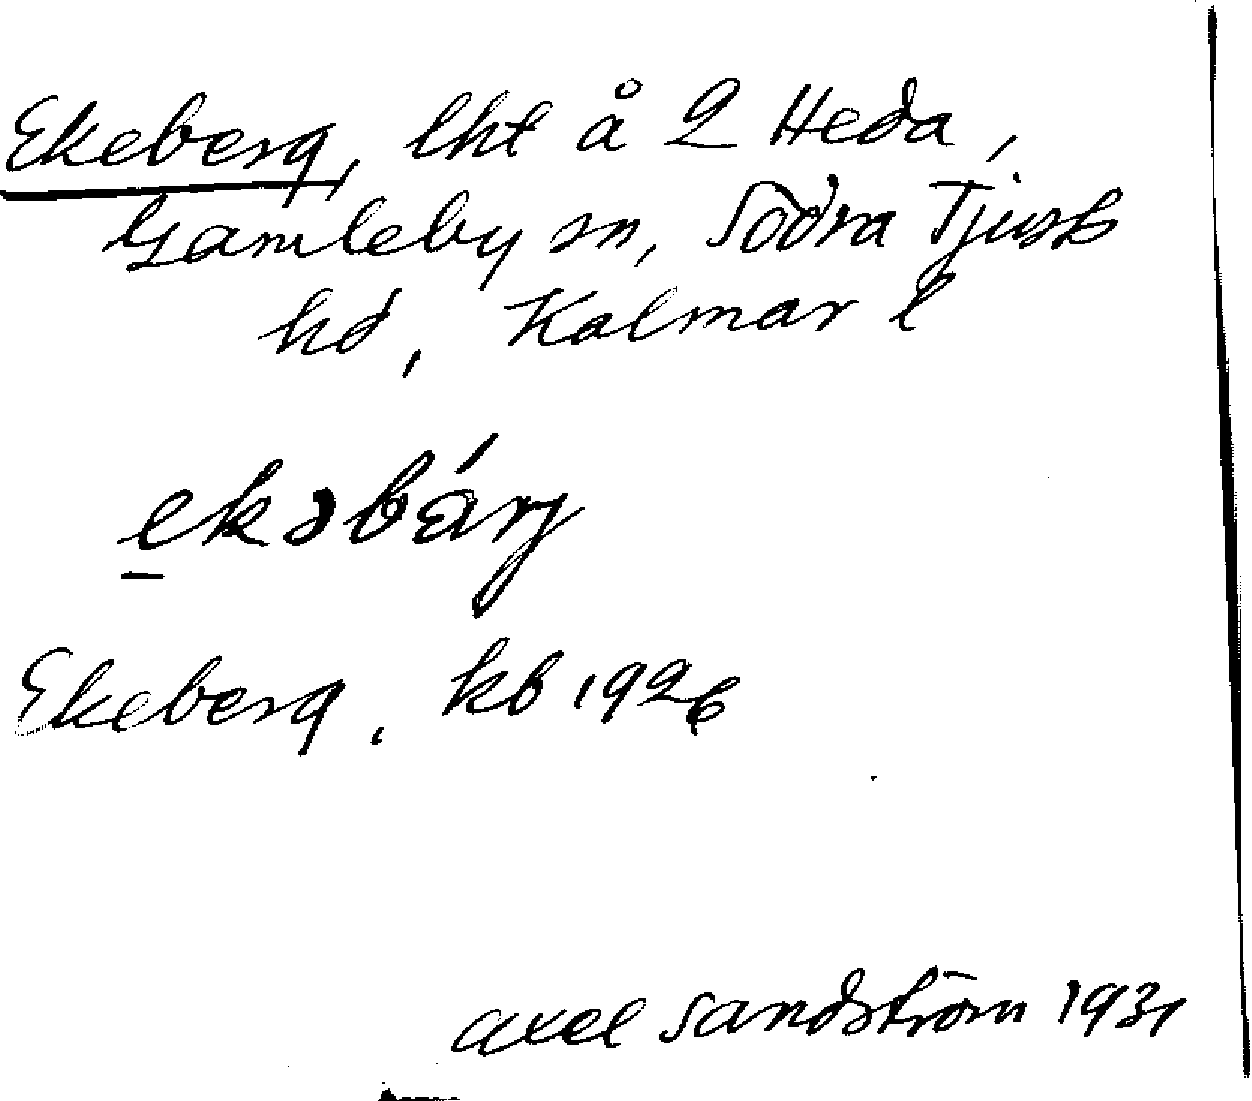 Ekeberg, lht å 2 Heda,
Gamleby sn, Södra Tjusts
hd, Kalmar l
ekəbárj
Ekeberg, kb 1926
Axel Sandström 1931